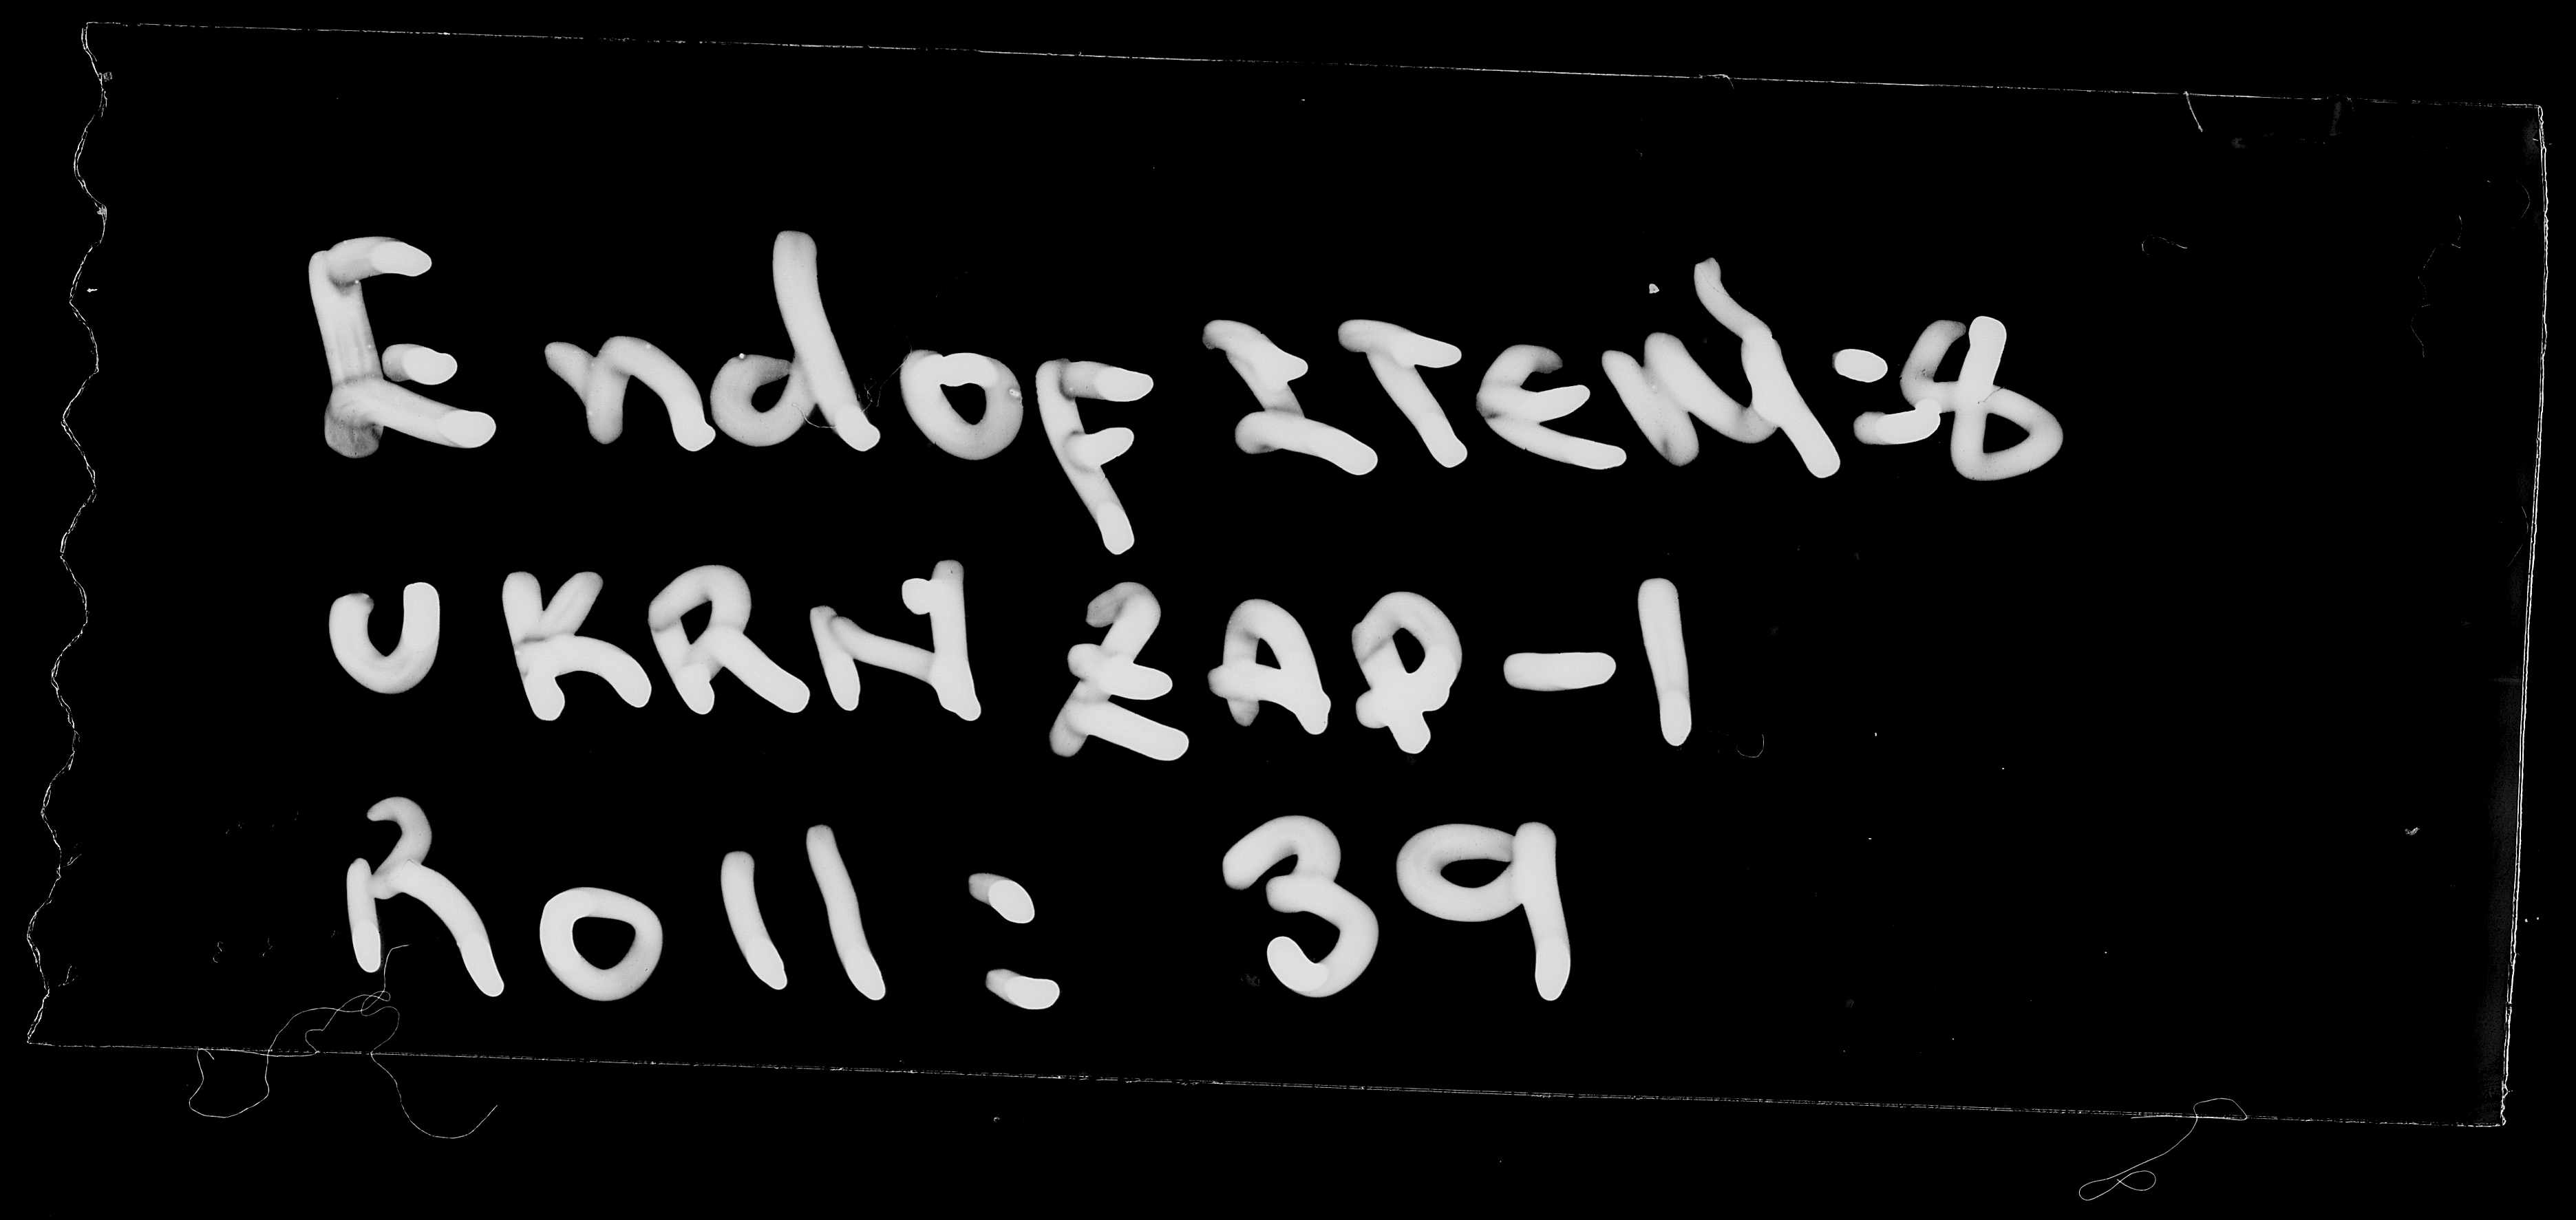 End of ITEM = 8
UKRN ZAP-1
Roll = 39